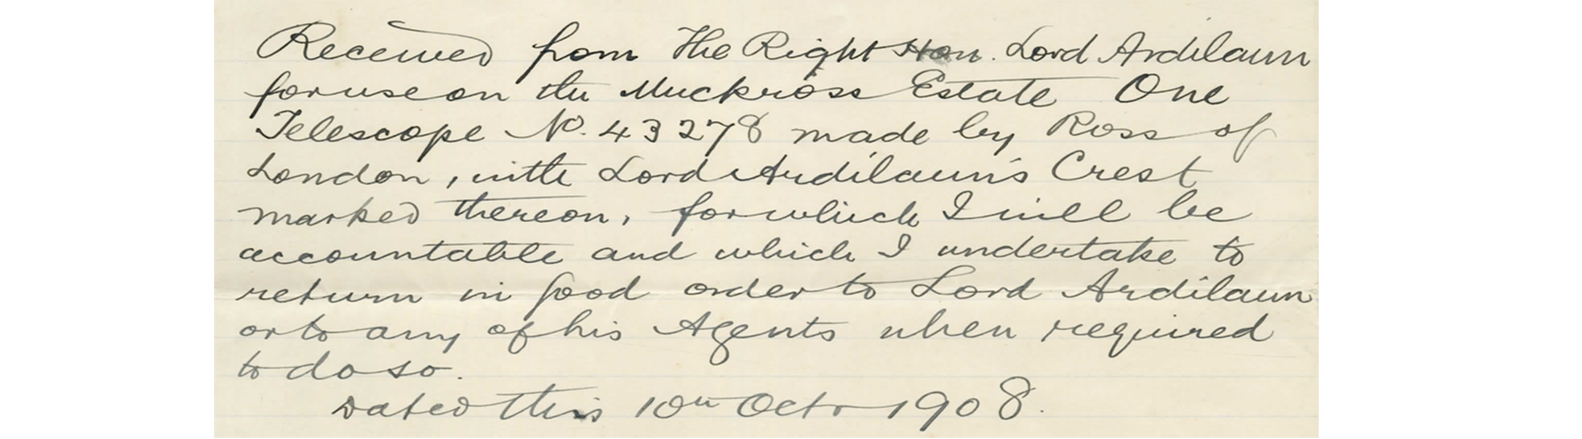 Received from The Right Hon. Lord Ardilaun
for use on the Muckross Estate One
Telescope No. 43278 made by Ross of
London, with Lord Ardilaun's Crest
marked thereon, for which I will be
accountable and which I undertake to
return in good order to Lord Ardilaun
or to any of his Agents when required
to do so.
Dated this 10th Octr 1908.